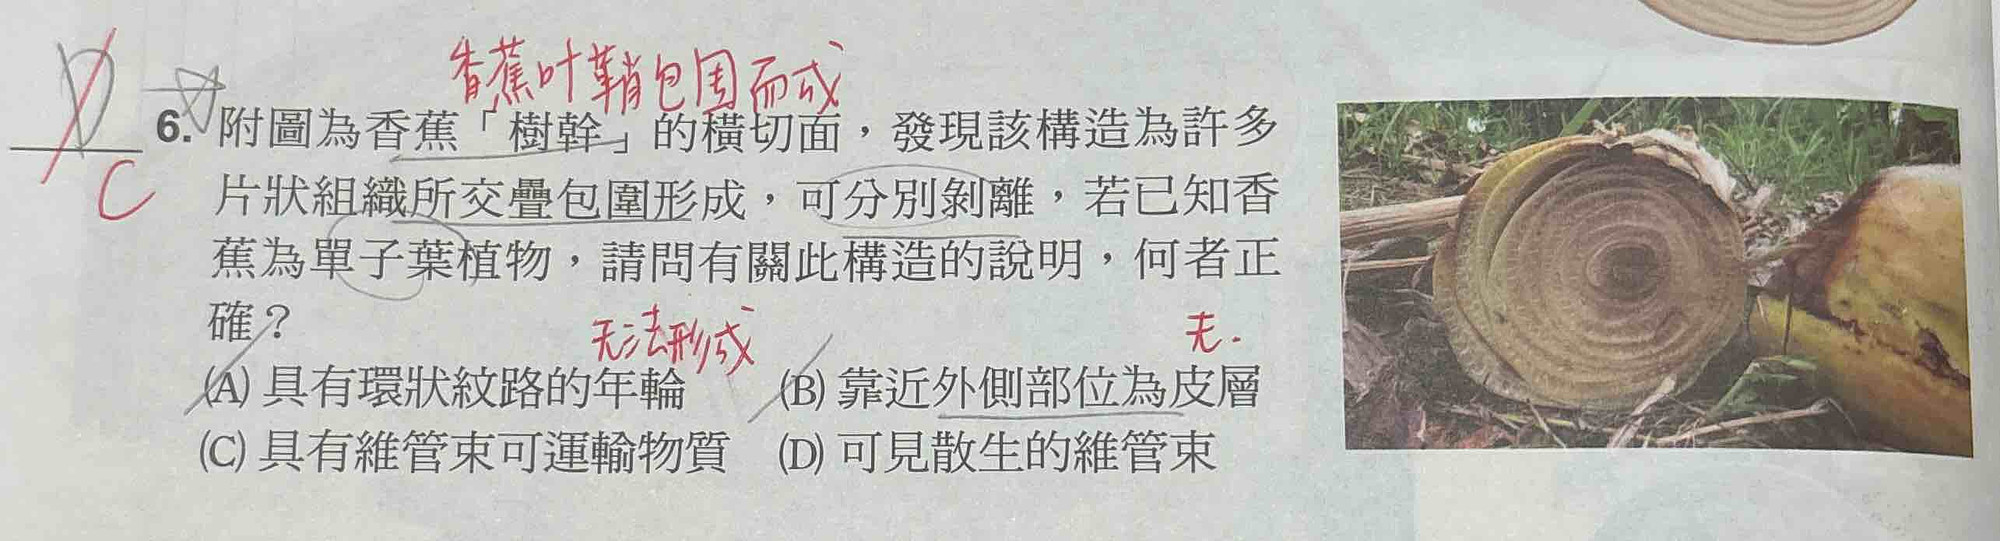 香蕉叶鞘包围而成
D
C
6. 附圖為香蕉「樹幹」的橫切面，發現該構造為許多
片狀組織所交疊包圍形成，可分別剝離，若已知香
蕉為單子葉植物，請問有關此構造的說明，何者正
確？
无法形成
无.
(A) 具有環狀紋路的年輪 (B) 靠近外側部位為皮層
(C) 具有維管束可運輸物質 (D) 可見散生的維管束